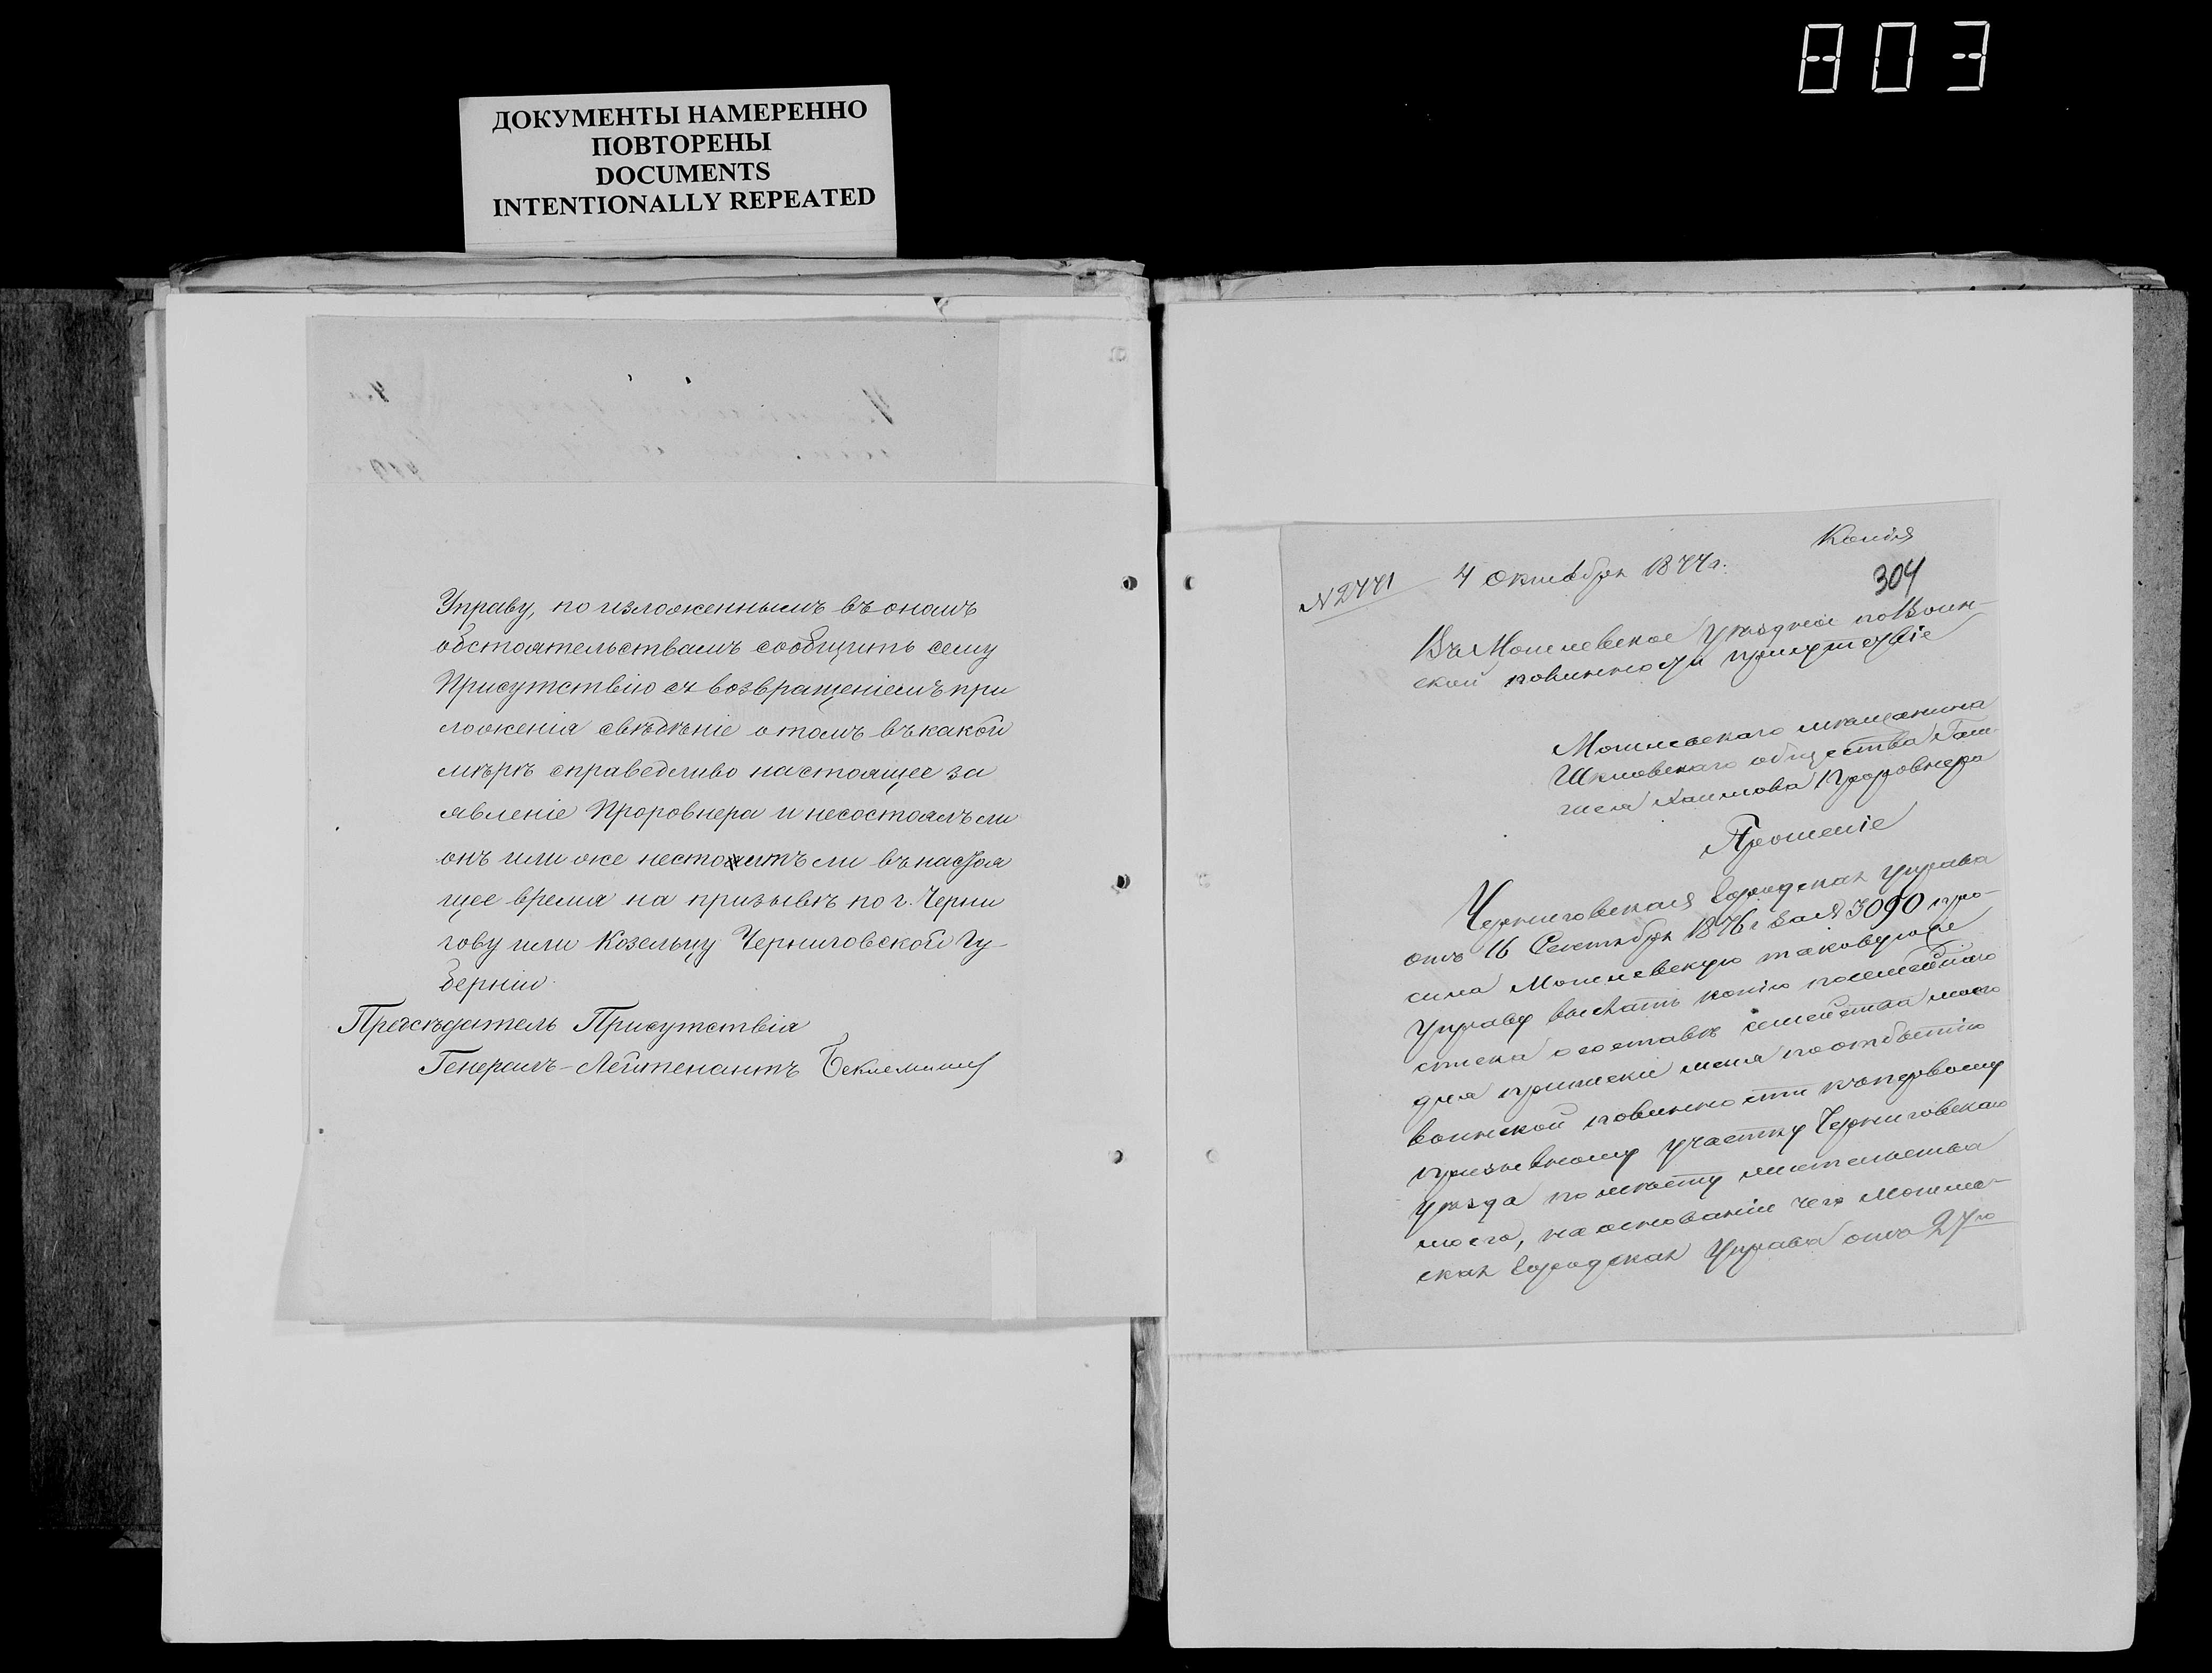 803
ДОКУМЕНТЫ НАМЕРЕННО
ПОВТОРЕНЫ
DOCUMENTS
INTENTIONALLY REPEATED
Управу, по изложеннымъ въ ономъ
обстоятельствамъ сообщить сему
Присутствію съ возвращеніемъ при
ложенія свѣдѣніе о томъ въ какой
мѣрѣ справедливо настоящее за
явленіе Проровнера и несостоялъ ли
онъ или же нестоитъ ли въ настоя
щее время на призывѣ по г. Черни
гову или Козельцу Черниговской Гу-
берніи.
Предсѣдатель Присутствія
Генералъ-Лейтенантъ Беклемишев
Копія
№ 2771 4 октября 1877 г.
304
Въ Могилевское уѣздное по Воин-
ской повинности присутствіе
Могилевскаго мѣщанина
Шкловскаго общества
Хаимова Проровнера
Прошеніе
Черниговская городская управа
отъ 16 Сентября 1876 г за № 3090 про-
сила Могилевскую таковую же
управу выслать копію посемейнаго
списка о составѣ семейства моего
для приписки меня по отбытію
воинской повинности къ первому
призывному участку Черниговскаго
уѣзда по мѣсту жительства
моего, на основаніи чего Могилев-
ская городская Управа отъ 27го